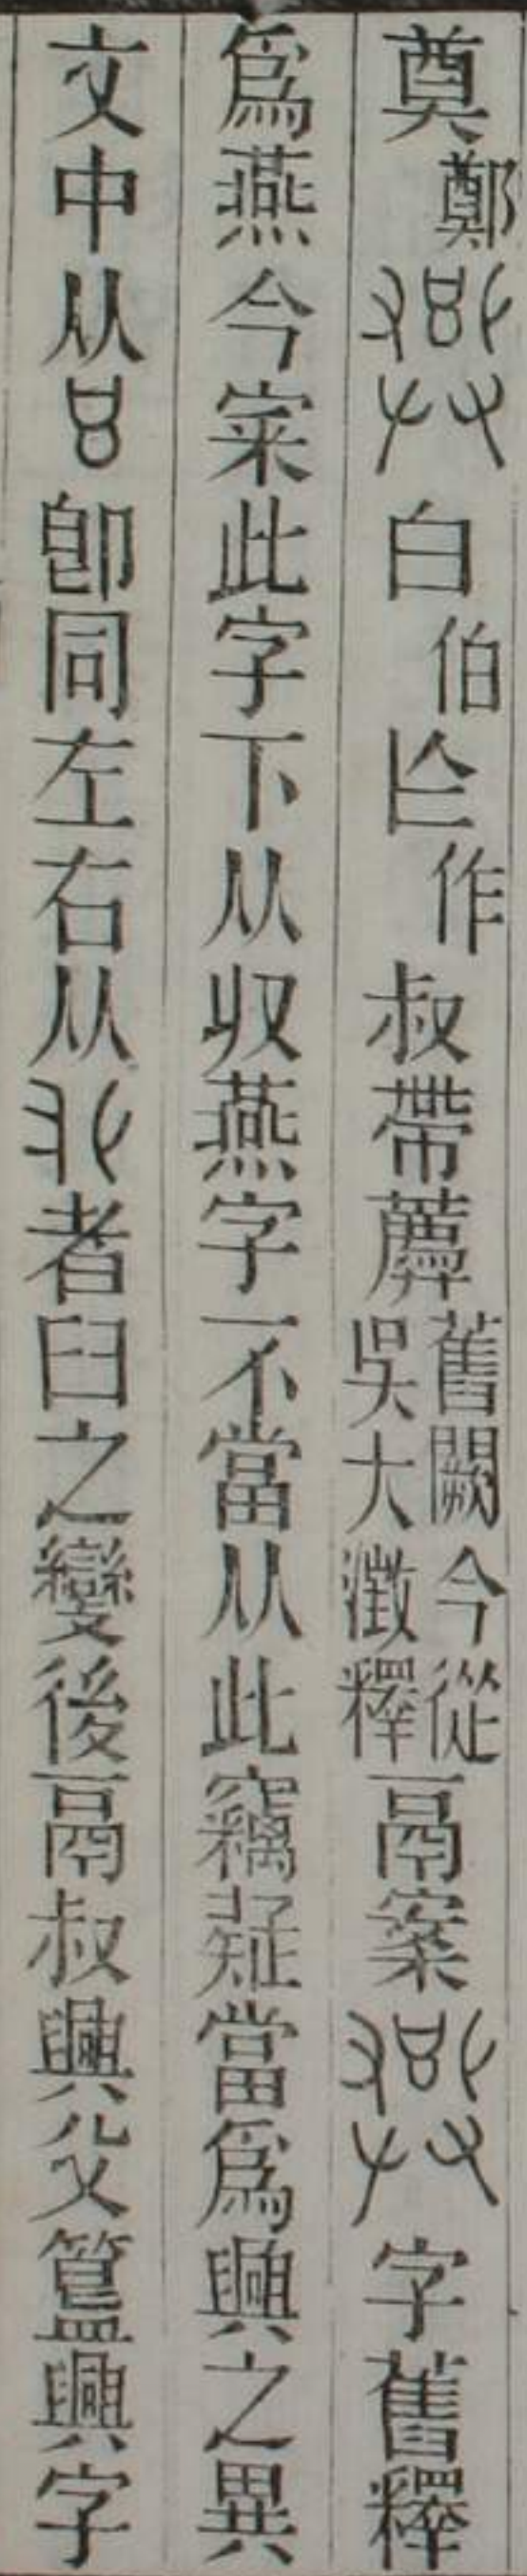 奠鄭白伯亾作叔帶薦舊闕今從吳大澂釋鬲案字舊釋
爲燕今宷此字下从収燕字不當从此竊疑當爲興之異
文中从即同左右从者𦥑之變後鬲叔興父簋興字